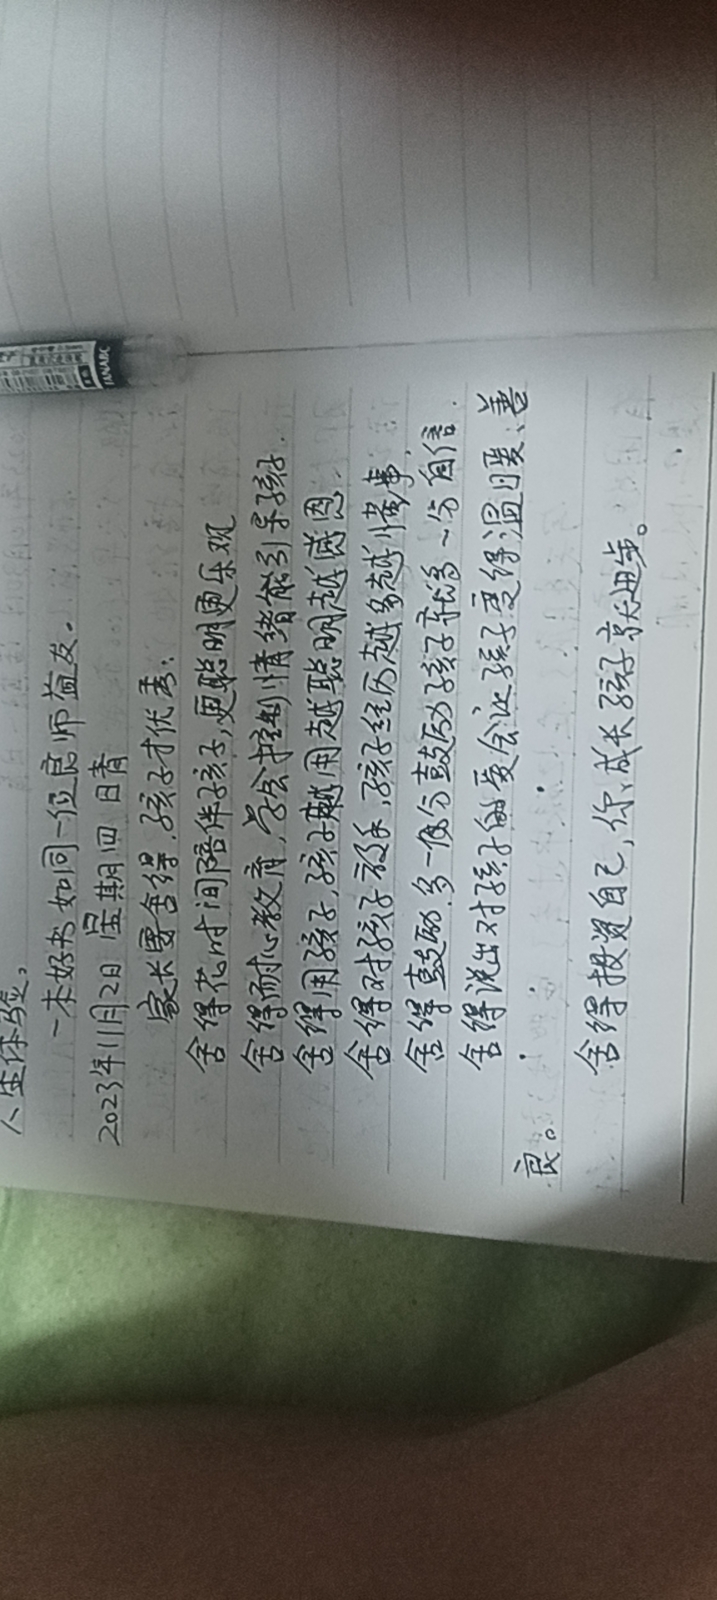 人生体验。
一本好书如同一位良师益友。
2023年11月2日 星期四 日青
家长要舍得，孩子才优秀：
舍得花时间陪伴孩子，更聪明更乐观
舍得耐心教育，学会控制情绪能引导孩子．
舍得用孩子，孩子越用越聪明越感恩．
舍得对孩子放手，孩子经历越多越懂事．
舍得鼓励．多一份鼓励孩子就多一分自信．
舍得说出对孩子的爱会让孩子变得温暖、善
良。
舍得投资自己，你成长孩子就进步。
TANABC